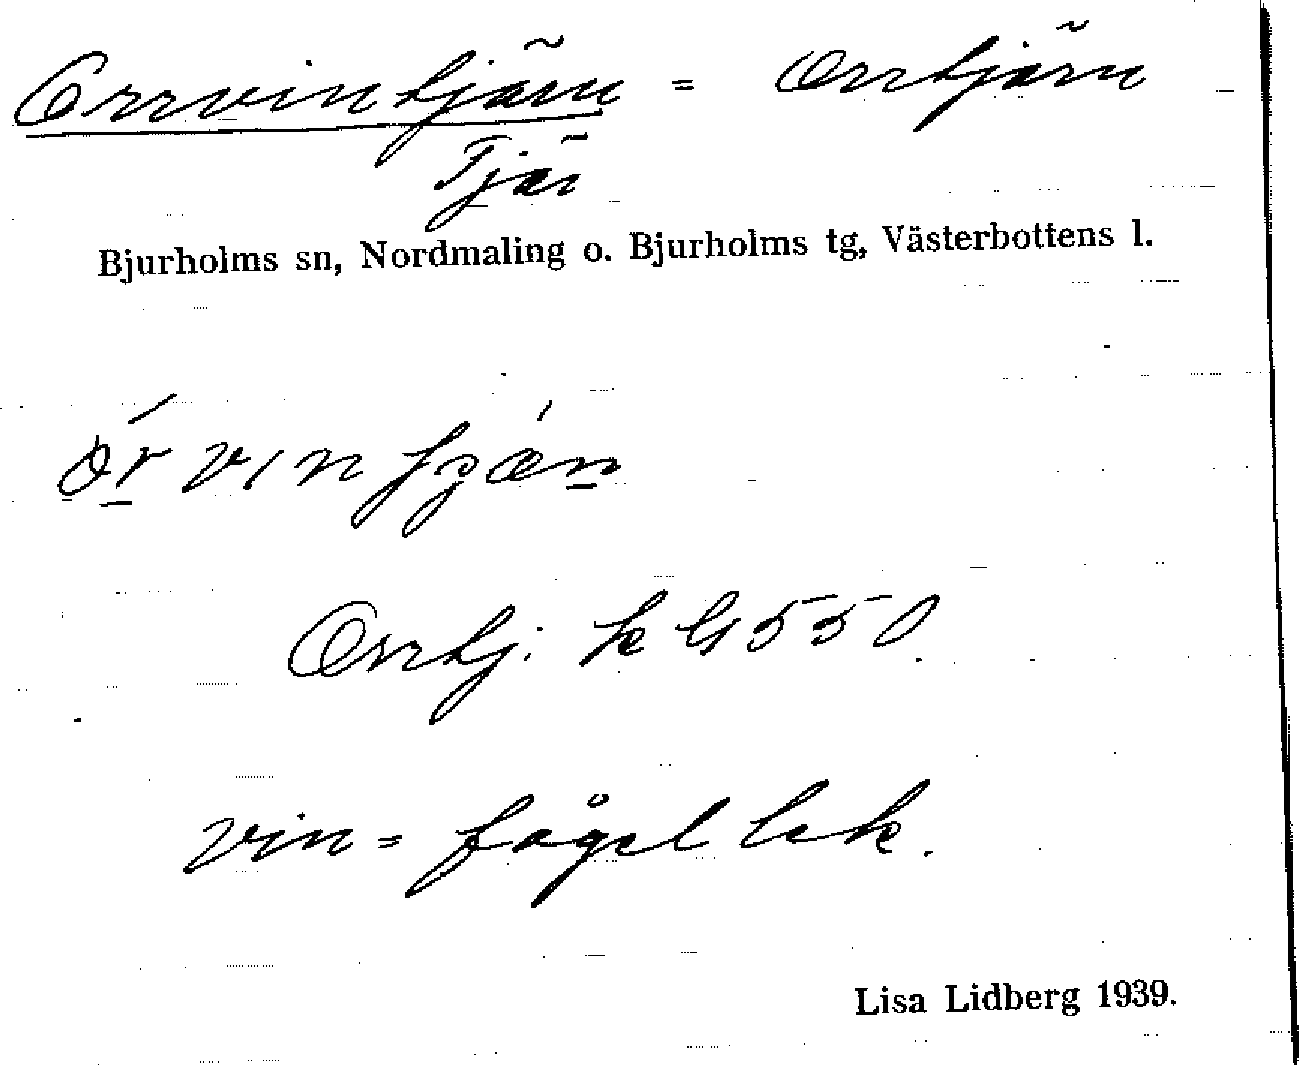 Orrvintjärn = Orrtjärn
Tjär
Bjurholms sn, Nordmaling o. Bjurholms tg, Västerbottens l.
Orrtj. k G 550
vin = fågellek.
Lisa Lidberg 1939.